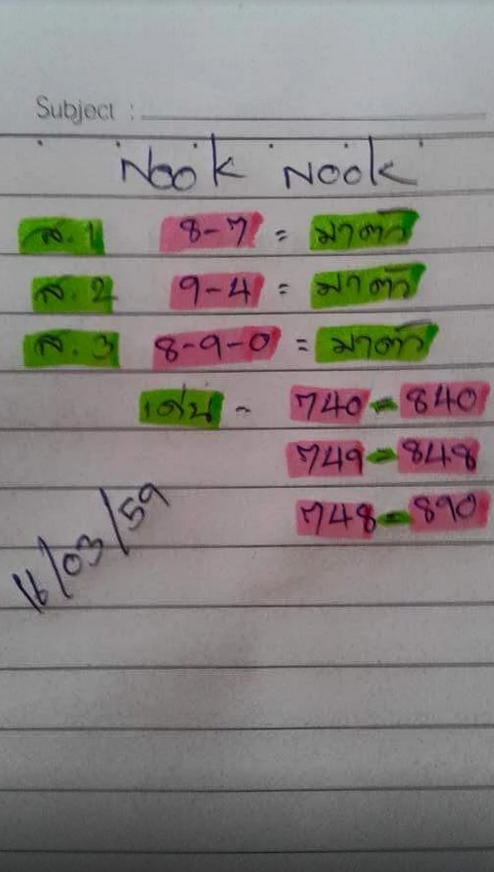 Subject :
Nook Nook
ส.1 8-7 = มาตัว
ส.2 9-4 = มาตัว
ส.3 8-9-0 = มาตัว
เด่น - 740 - 840
749 - 848
748 - 890
16/03/59